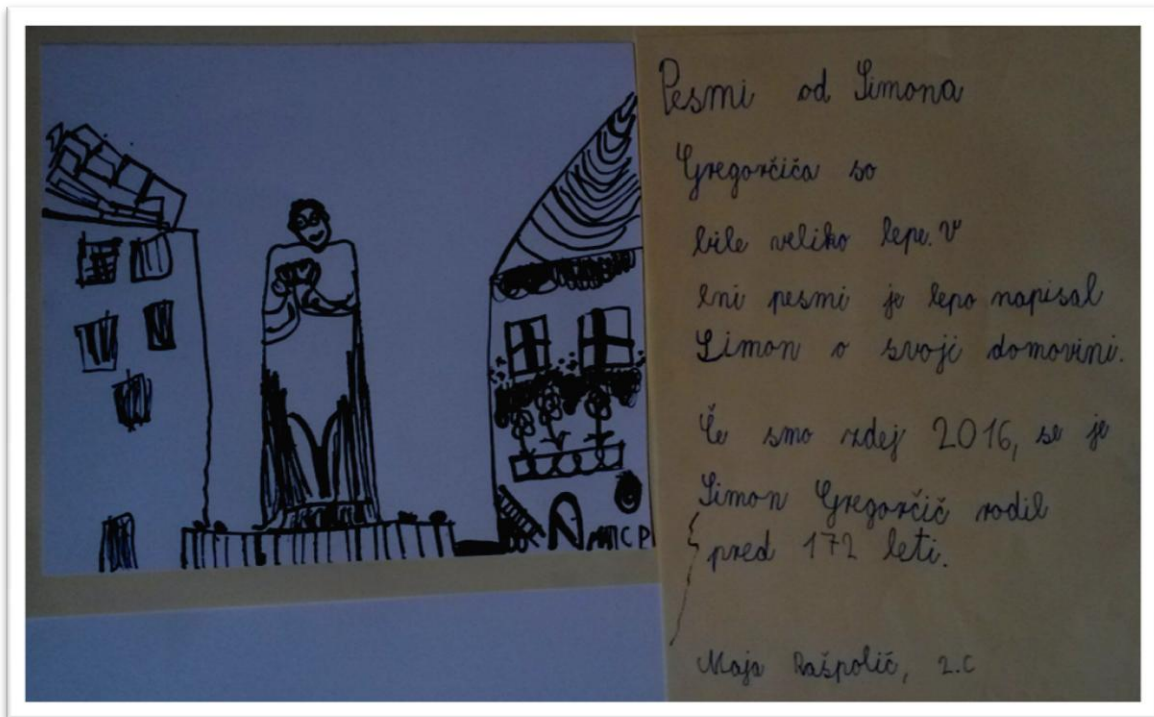 Pesmi od Simona
Gregorčiča so
bile veliko lepe. V
eni pesmi je lepo napisal
Simon o svoji domovini.
Če smo zdej 2016, se je
Simon Gregorčič rodil
pred 172 leti.
Maja Rašpolič, 2.c